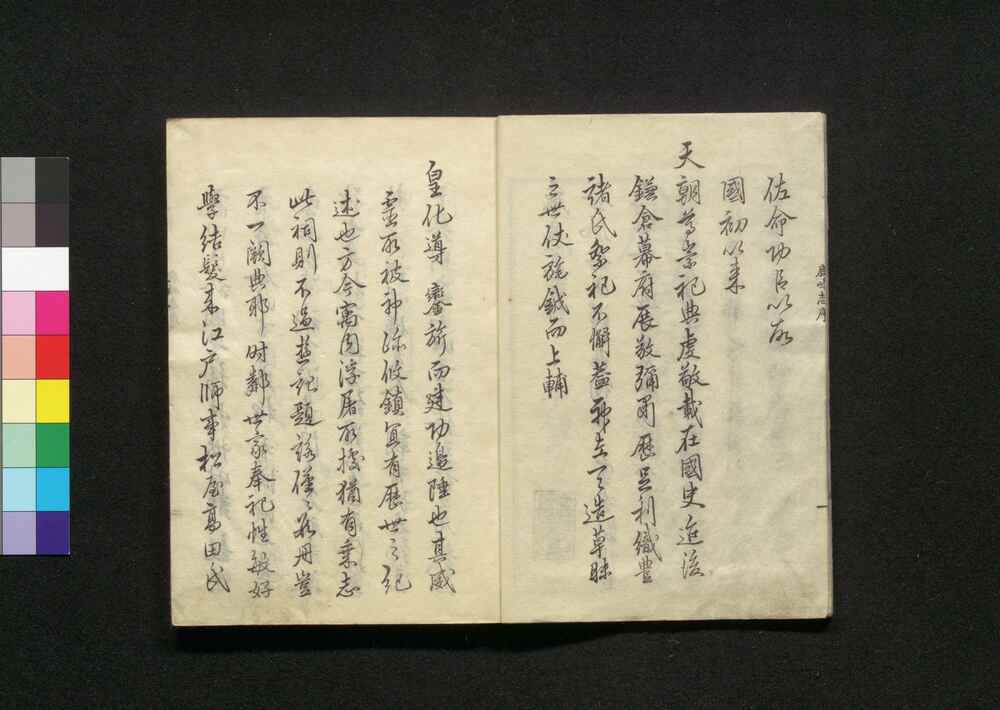 佐命功臣以故
國初以来
天朝尊崇祀典虔敬載在國史迨後
鎌倉幕府展敬彌篤歷足利織豊
諸氏祭祀不懈蓋神在天造草昧
之世仗旄鉞而上輔
皇化導齋旂而建功邊陲也其威
靈所被神跡攸鎮宜有歷世之紀
述也方今寓内浮屠所據猶有乗志
此祠則不過
題
不一闕典耶時鄰世家奉祀性敏好
學結髮来江戸師事松屋高田氏
鹿嶋志序